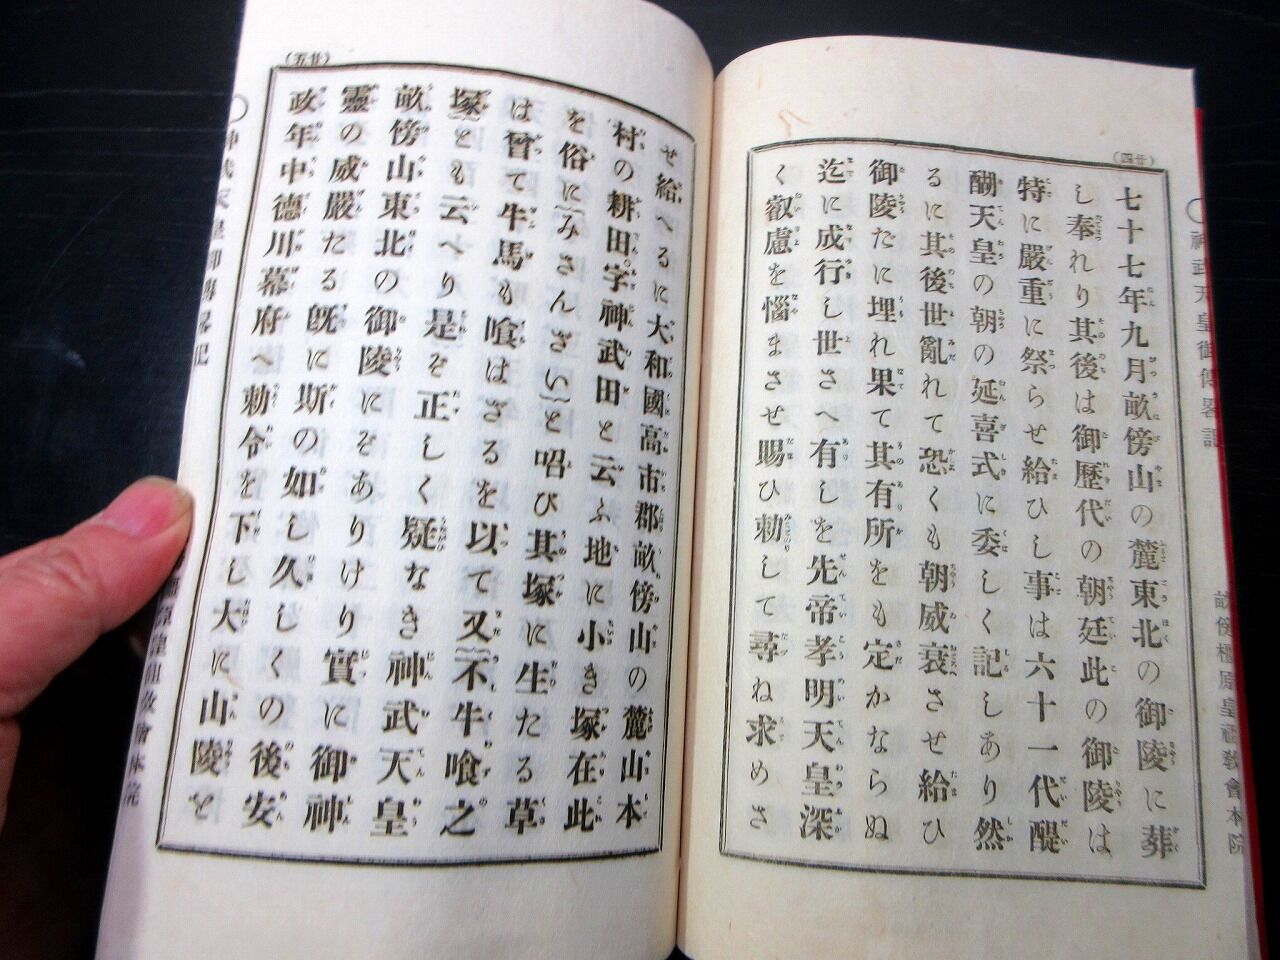 (廿四)
七十七年九月畝傍山の麓東北の御陵に葬
し奉れり其後は御歷代の朝廷此の御陵は
特に嚴重に祭らせ給ひし事は六十一代醍
醐天皇の朝の延喜式に委しく記しあり然
るに其後世亂れて恐くも朝威衰させ給ひ
御陵たに埋れ果て其有所をも定かならぬ
迄に成行し世さへ有しを先帝孝明天皇深
く叡慮を惱まさせ賜ひ勅して尋ね求めさ
〇神武天皇御傳畧記
畝傍橿原皇祖敎會本院
(廿五)
せ給へるに大和國高市郡畝傍山の麓山本
村の耕田字神武田と云ふ地に小き塚在此
を俗にみさんざいと呼び其塚に生たる草
は曾て牛馬も喰はざるを以て又不牛喰之
塚とも云へり是を正しく疑なき神武天皇
畝傍山東北の御陵にぞありけり實に御神
靈の威嚴たる既に斯の如し久しくの後安
政年中德川幕府へ勅令を下し大に山陵を
〇神武天皇御傳畧記
橿原皇祖敎會本院